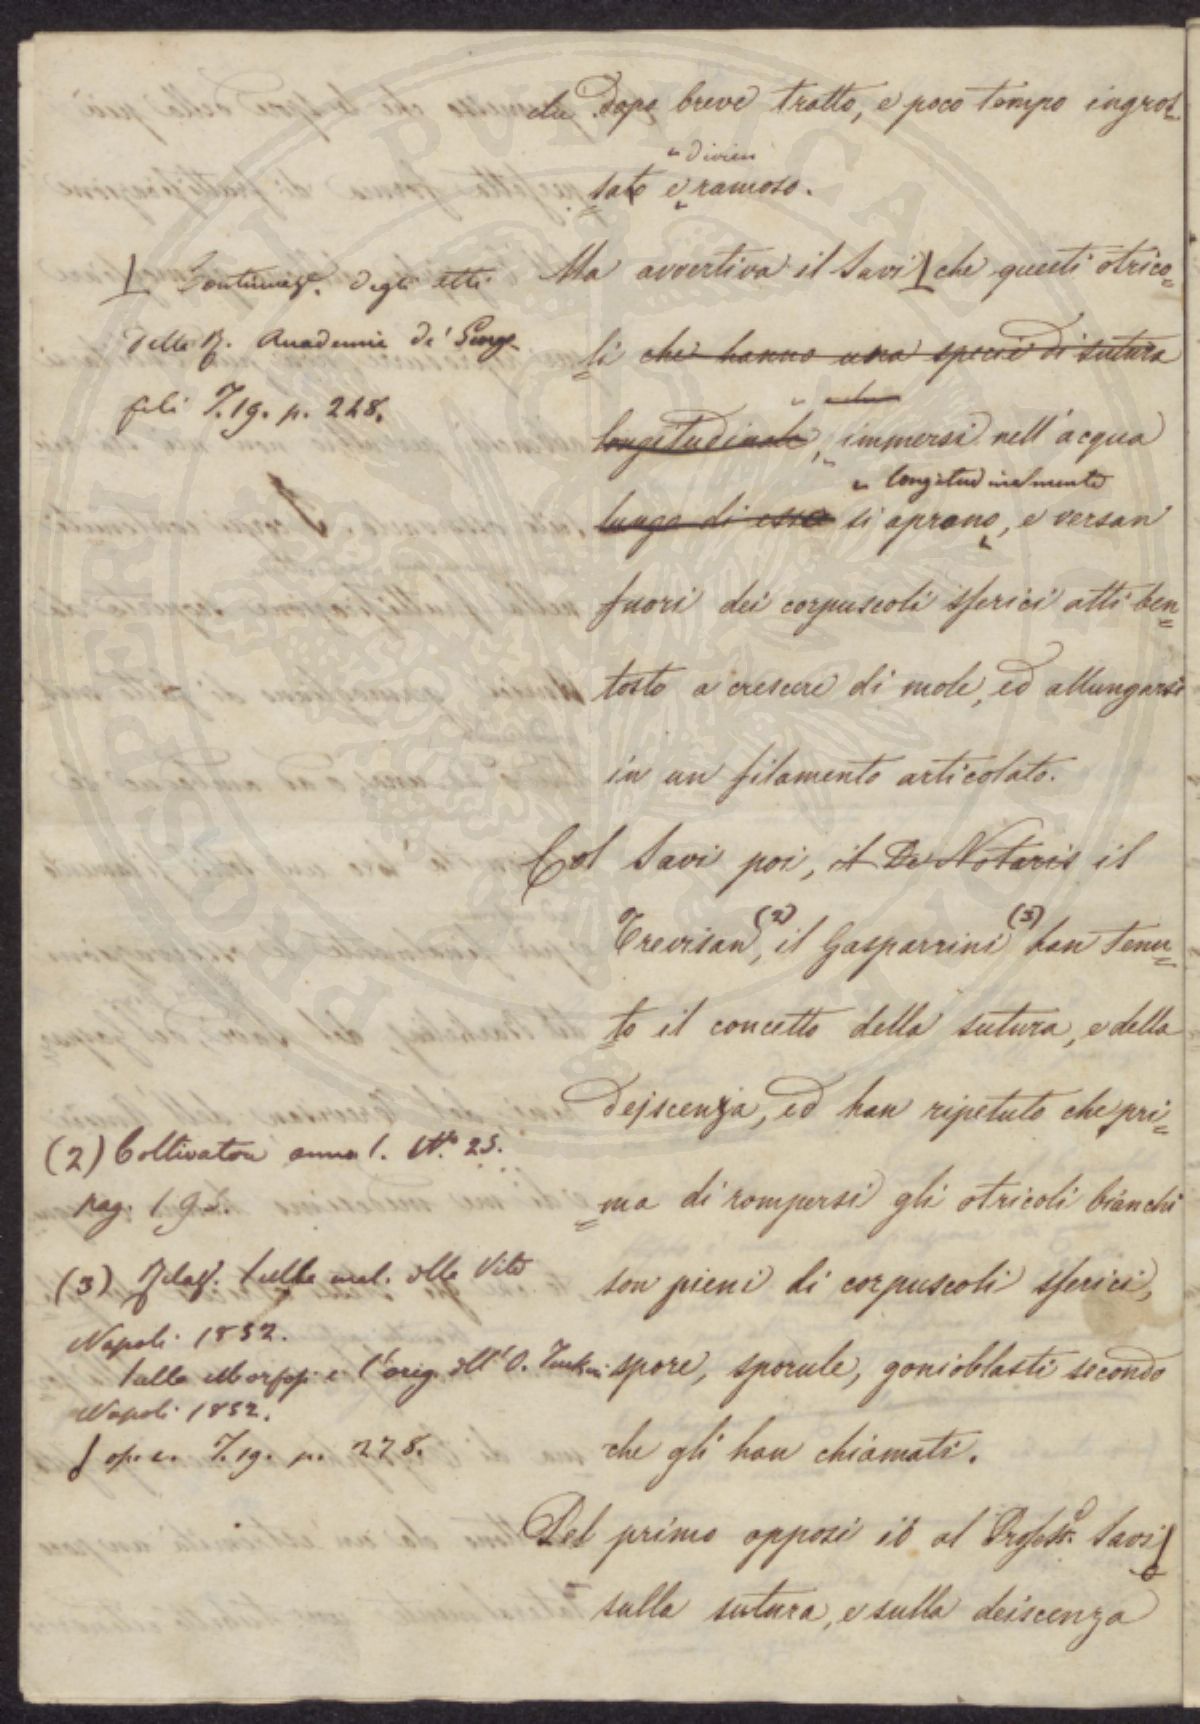 che dopo breve tratto, e poco tempo ingros=
divien
=sato e ramoso.
Ma avvertiva il Savi che questi otrico=
=li che hanno una specie di sutura
longitudinale, immersi nell'acqua
longitudinalmente
lungo di essa si aprono, e versan
fuori dei corpuscoli sferici atti ben=
tosto a crescere di mole, ed allungarsi
in un filamento articolato.
Col Savi poi, il De Notaris il
Trevisan (2), il Gasparrini (3) han tenu=
=to il concetto della sutura, e della
dejscenza, ed han ripetuto che pri=
=ma di rompersi gli otricoli bianchi
son pieni di corpuscoli sferici,
spore, sporule, gonioblasti secondo
che gli han chiamati.
Del primo opposi io al Profess. Savi
sulla sutura, e sulla deiscenza
Continuaz. degli Atti
della R. Accademia de' Georgo
fili T. 19. p. 228.
(2) Coltivatore anno 1. N.° 25.
pag. 195.
(3) Relaz. sulla mal. della Vite
Napoli 1852.
Sulla Morfo. e l'orig. dell'O. Tuckeri
Napoli 1852.
op. c. T. 19. p. 228.